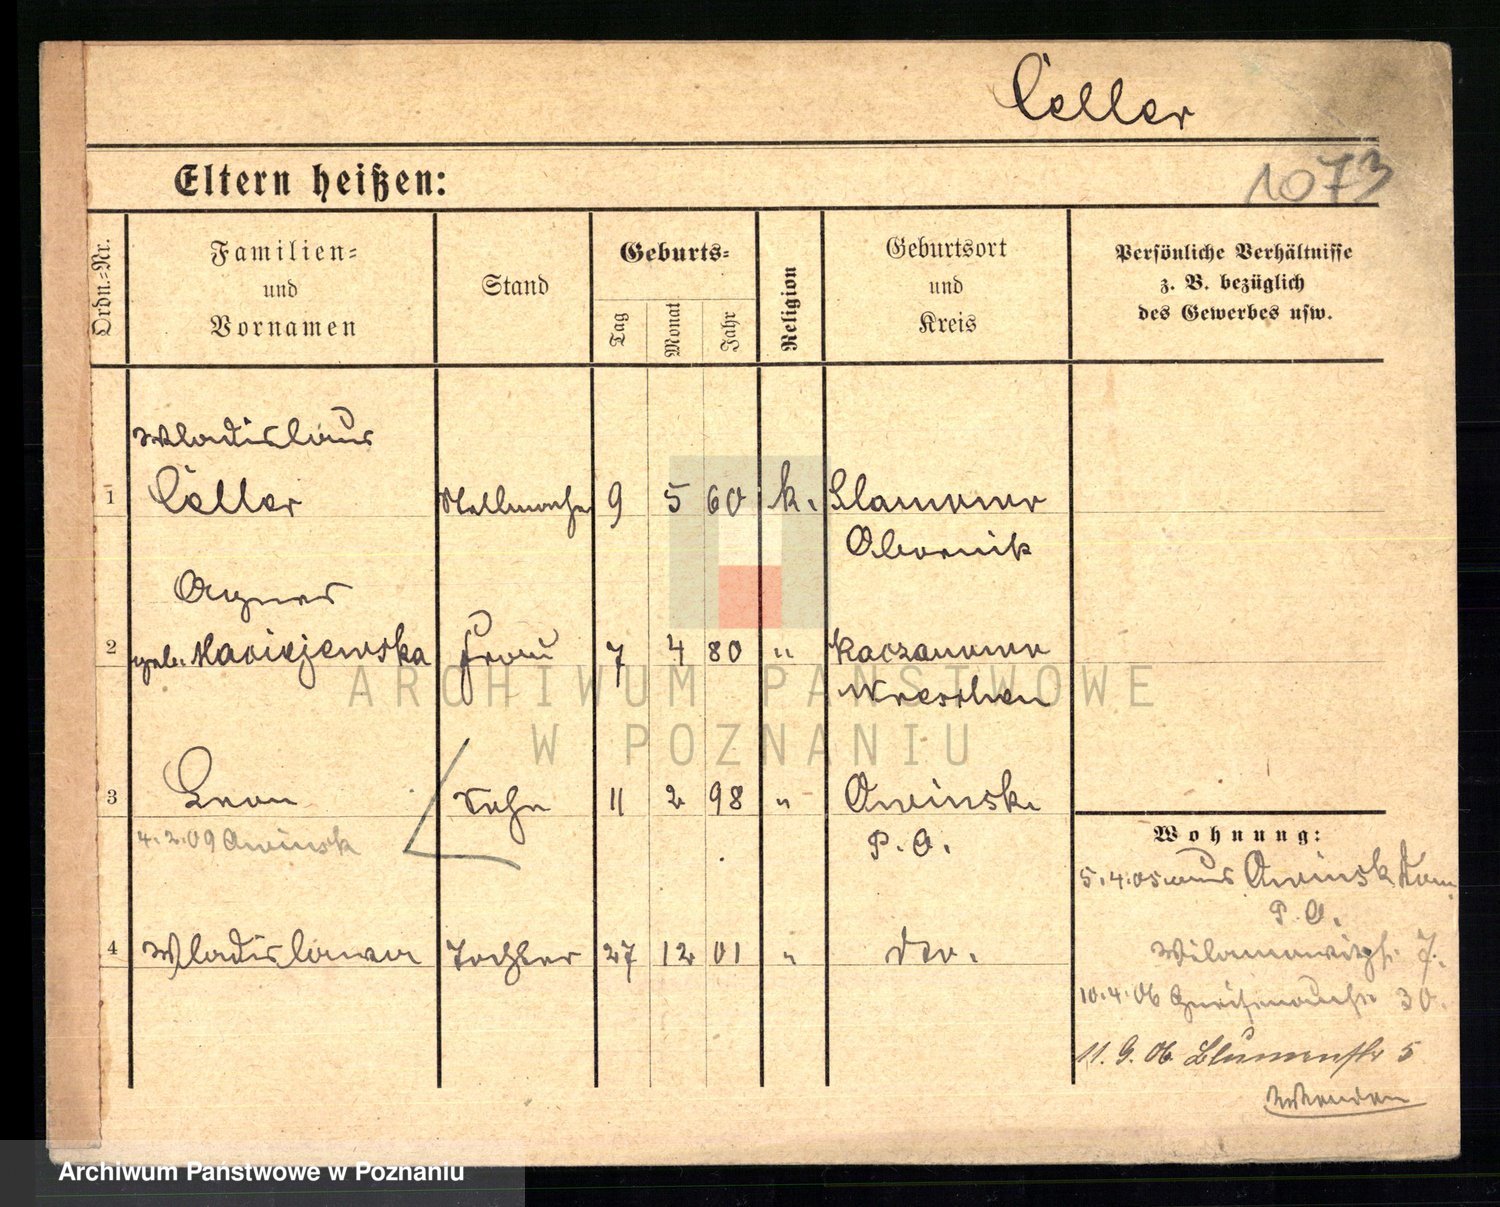 Celler
Eltern heißen:
1073
Ordn.-Nr.
Familien-
und
Vornamen
Stand
Geburts-
Tag
Monat
Jahr
Religion
Geburtsort
und
Kreis
Persönliche Verhältnisse
z. B. bezüglich
des Gewerbes usw.
Wladislaus
1 Celler Stellmacher 9 5 60 k.
Obornik
Agnes
2 geb. Maciejewska Frau 7 4 80 " Kaczanowo
Wreschen
3 Leon Sohn 11 2 98 " Owinsk
4.2.09 Owinsk P. O.
Wohnung:
5.4.05 aus Owinsk Dom.
P. O.
4 Wladislawa Tochter 27 12 01 " do.
Wilamowitzstr. 7.
10.4.06 Gneisenaustr 30.
11.9.06 Blumenstr 5
Wenden
ARCHIWUM PAŃSTWOWE
W POZNANIU
Archiwum Państwowe w Poznaniu